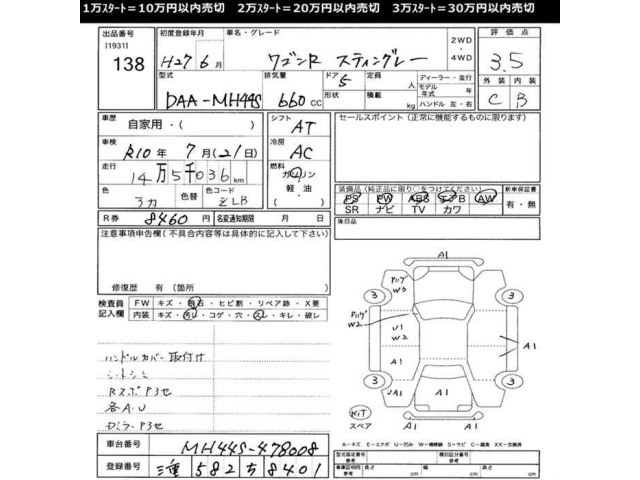 1万スタート＝10万円以内売切　2万スタート＝20万円以内売切　3万スタート＝30万円以内売切
出品番号
[1931]
138
初度登録年月
H27年6月
車名・グレード
ワゴンR スティングレー
2WD
・
4WD
評価点
3.5
型式
DAA-MH44S
排気量
660 CC
ドア
5
形状
定員
人
積載
kg
ディーラー・並行
モデル
年式 年
ハンドル 左・右
外装 内装
C B
車歴
自家用・( )
車検
R10年 7月(21日)
走行
14万5千036km
色
色替
色コード
ZLB
R券
8460円
名変通知期限 月 日
シフト
AT
冷房
AC
燃料
ガソリン
・
軽油
セールスポイント（正常に機能するものに限ります）
装備品（純正品に限り○をつけてください）
PS PW ABS エアB AW
SR ナビ TV カワ
新車保証書
有・無
後日品
注意事項申告欄（不具合内容等は具体的に記入して下さい）
修復歴 有（箇所
検査員
記入欄
FW キズ・飛石・ヒビ割・リペア跡・X要
内装 キズ・汚レ・コゲ・穴・スレ・キレ・破レ
ハンドルカバー取付け
シートシミ
RスポPキセ
各A・U
車台番号
MH44S-478008
登録番号
三重 582 ち 8401
A1
3
3
W3
W2
U1
W2
A1
A1
A1
UA1
3
3
KIT
スペア
A1
A1
A－キズ E－エクボ U－凹み W－補修跡 S－サビ C－腐食 XX－交換済
型式指定番号
参考
類別区分番号
参考
車庫証明用
参考
長さ
cm
幅
cm
高さ
cm